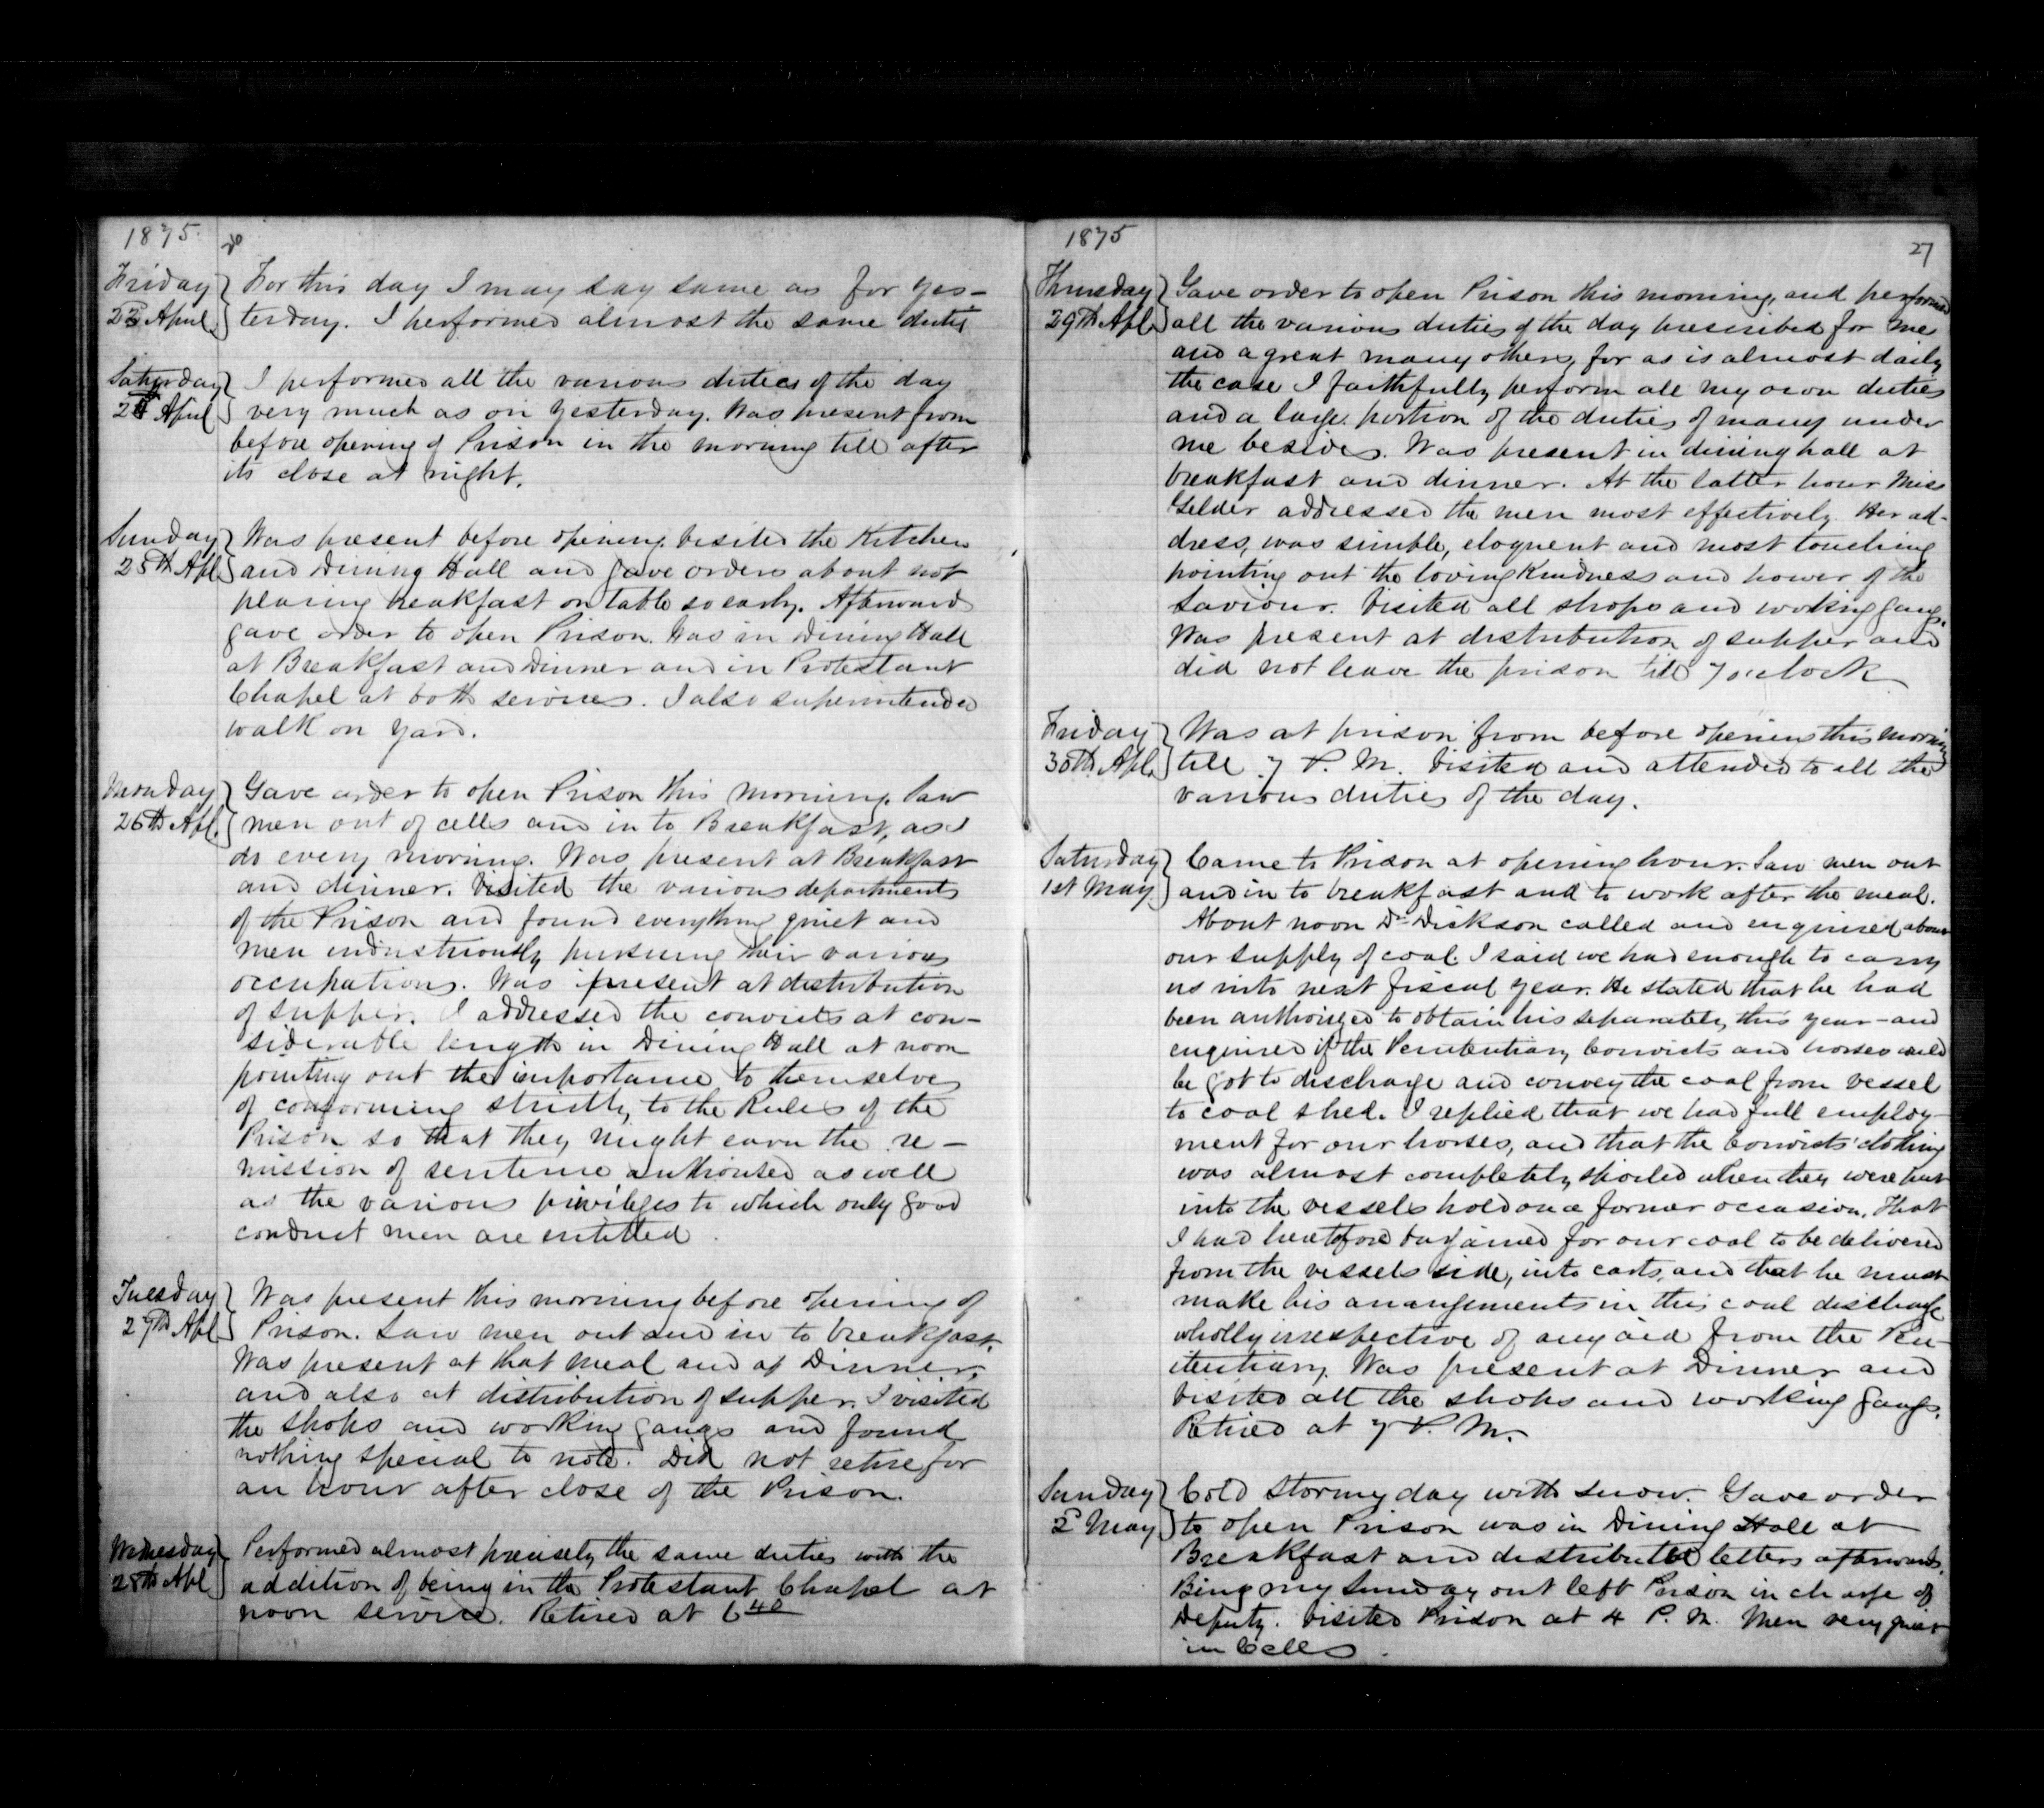 1875
Friday } For this day I may say same as for yes-
23 April } terday. I performed almost the same duties
Saturday } I performed all the various duties of the day
24 April } very much as on yesterday. Was present from
before opening of Prison in the morning till after
its close at night.
Sunday } Was present before opening. Visited the Kitchen
25th Apl } and Dining Hall and gave orders about not
placing breakfast on table so early. Afterward
gave order to open Prison. Was in Dining Hall
at Breakfast and Dinner and in Protestant
Chapel at both services. I also superintended
walk on yard.
Monday } Gave order to open Prison this morning. Saw
26th Apl. } men out of cells and in to Breakfast, as I
do every morning. Was present at Breakfast
and dinner. Visited the various departments
of the Prison and found everything quiet and
men industriously pursuing their various
occupations. Was present at distribution
of supper. I addressed the convicts at con-
siderable length in Dining Hall at noon
pointing out the importance to themselves
of conforming strictly to the Rules of the
Prison so that they might earn the re-
mission of sentence authorised as well
as the various privileges to which only good
conduct men are entitled.
Tuesday } Was present this morning before opening of
27th Apl } Prison. Saw men out and in to breakfast.
Was present at that meal and at Dinner,
and also at distribution of supper. I visited
the shops and working gangs and found
nothing special to note. Did not retire for
an hour after close of the Prison.
Wednesday } Performed almost precisely the same duties with the
28th Apl } addition of being in the Protestant Chapel at
noon service. Retired at 6 40
1875
27
Thursday } Gave order to open Prison this morning, and performed
29th Apl. } all the various duties of the day prescribed for me
and a great many others, for as is almost daily
the case I faithfully perform all my own duties
and a large portion of the duties of many under
me besides. Was present in dining hall at
breakfast and dinner. At the latter hour Miss
Gelder addressed the men most effectively. Her ad-
dress, was simple, eloquent and most touching
pointing out the loving Kindness and power of the
Saviour. Visited all shops and working gangs.
Was present at distribution of supper and
did not leave the prison till 7 oclock
Friday } Was at prison from before opening this morning
30th Apl. } till 7 P.M. Visited and attended to all the
various duties of the day.
Saturday } Came to Prison at opening hour. Saw men out
1st May. } and in to breakfast and to work after the meal.
About noon Dr Dickson called and enquired about
our supply of coal. I said we had enough to carry
us into next fiscal year. He stated that he had
been authorized to obtain his separately this year - and
enquired if the Penitentiary Convicts and horses could
be got to discharge and convey the coal from vessel
to coal shed. I replied that we had full employ-
ment for our horses, and that the Convicts' clothing
was almost completely spoiled when they were put
into the vessels hold on a former occasion. That
I had heretofore bargained for our coal to be delivered
from the vessels side, into carts, and that he must
make his arrangements in this coal discharge
wholly irrespective of any aid from the Pen-
itentiary. Was present at Dinner and
visited all the shops and working gangs.
Retired at 7 P.M.
Sunday } Cold stormy day with snow. Gave order
2d May } to open Prison was in Dining Hall at
Breakfast and distributed letters afterwards.
Being my Sunday out left Prison in charge of
Deputy. Visited Prison at 4 P.M. Men very quiet
in Cells.